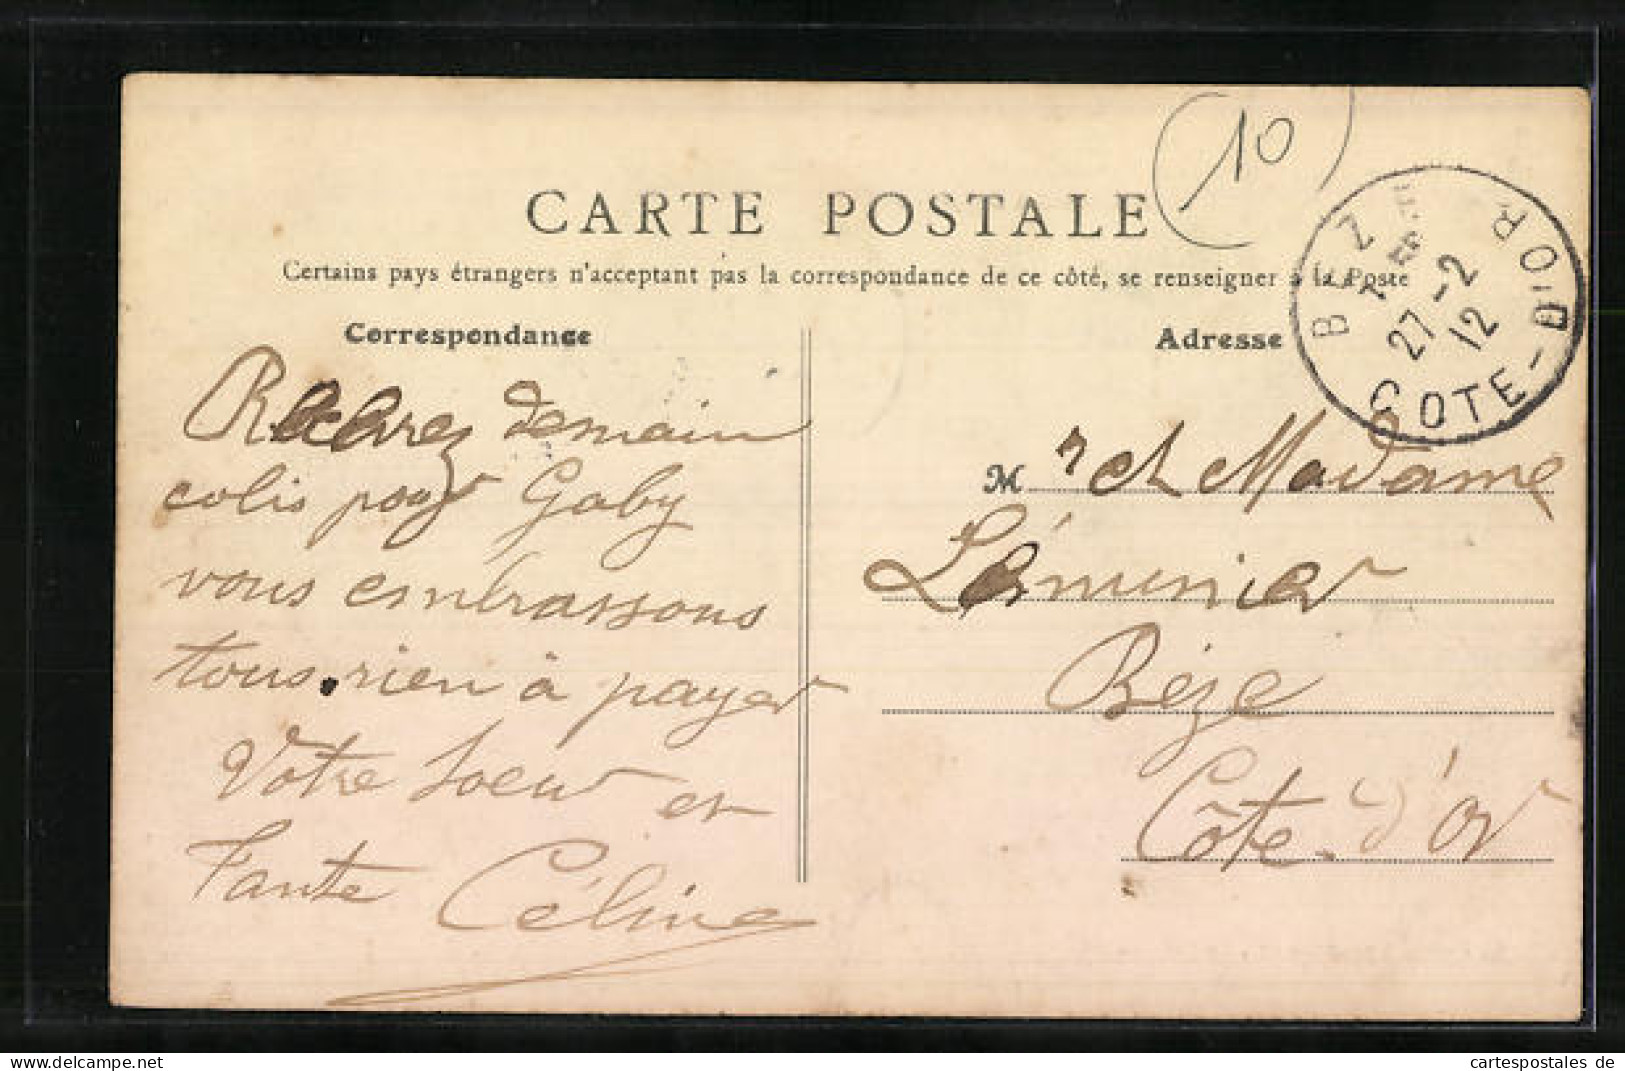 10
CARTE POSTALE
Certains pays étrangers n'acceptant pas la correspondance de ce côté, se renseigner à la Poste
Correspondance
demain
colis pour Gaby
vous embrassons
tous. rien à payer
Votre soeur et
Tante Céline
Adresse
Mr et Madame
Lémunier
Bèze
Côte-d'or
BEZ
27-2
12
COTE-D'OR
cartespostales de